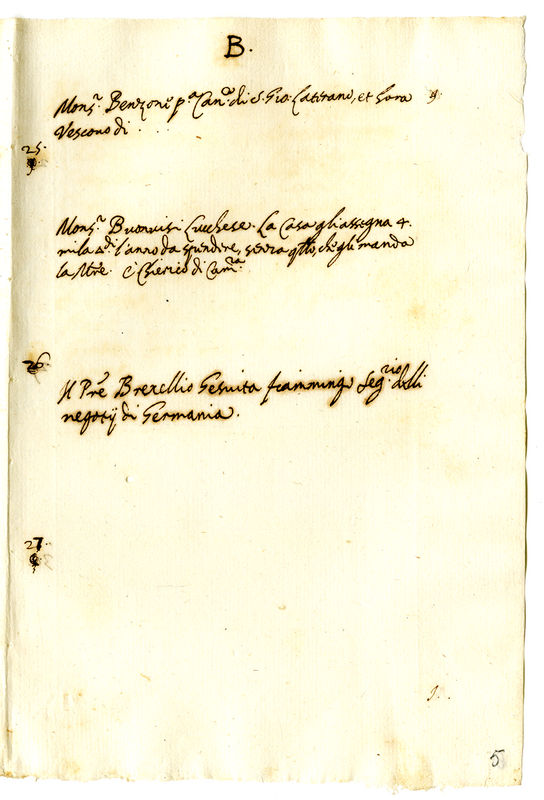 B.
Mons.r Benzoni p.a Can.co di S. Gio: Laterano, et hora 9.
Vescono di . . .
25.
Mons.r Buonvisi Lucchese. La Casa gli assegna 4.
mila a.di l'anno da spendere, senza qllo, che gli manda
la Mre. è Chierico di Cam.a
26.
Il Pre Brexellio Gesuita fiammingo Seg.rio delli
negotij di Germania.
27.
5